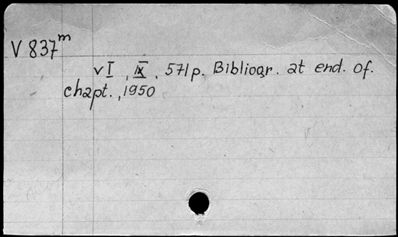 V 837m
v I, IX, 571p. Bibliogr. at end. of.
chapt., 1950